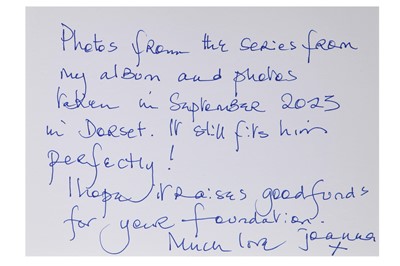 Photos from the series from
my album and photos
taken in September 2023
in Dorset. It still fits him
perfectly!
I hope it raises good funds
for your foundation.
Much love Joanna
x